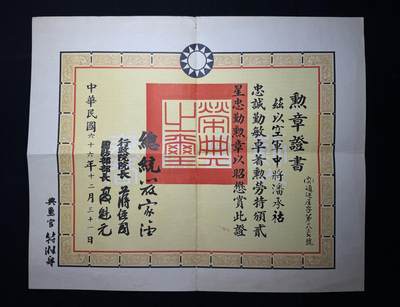 勲章證書
茲以空軍中將潘承祜
忠誠勤敏卓著勲勞特頒貳
星忠勤勲章以昭懋賞此證
總統嚴家淦
行政院院長蔣經國
國防部部長高魁元
中華民國六十六年十二月三十一日
典璽官
榮典之璽